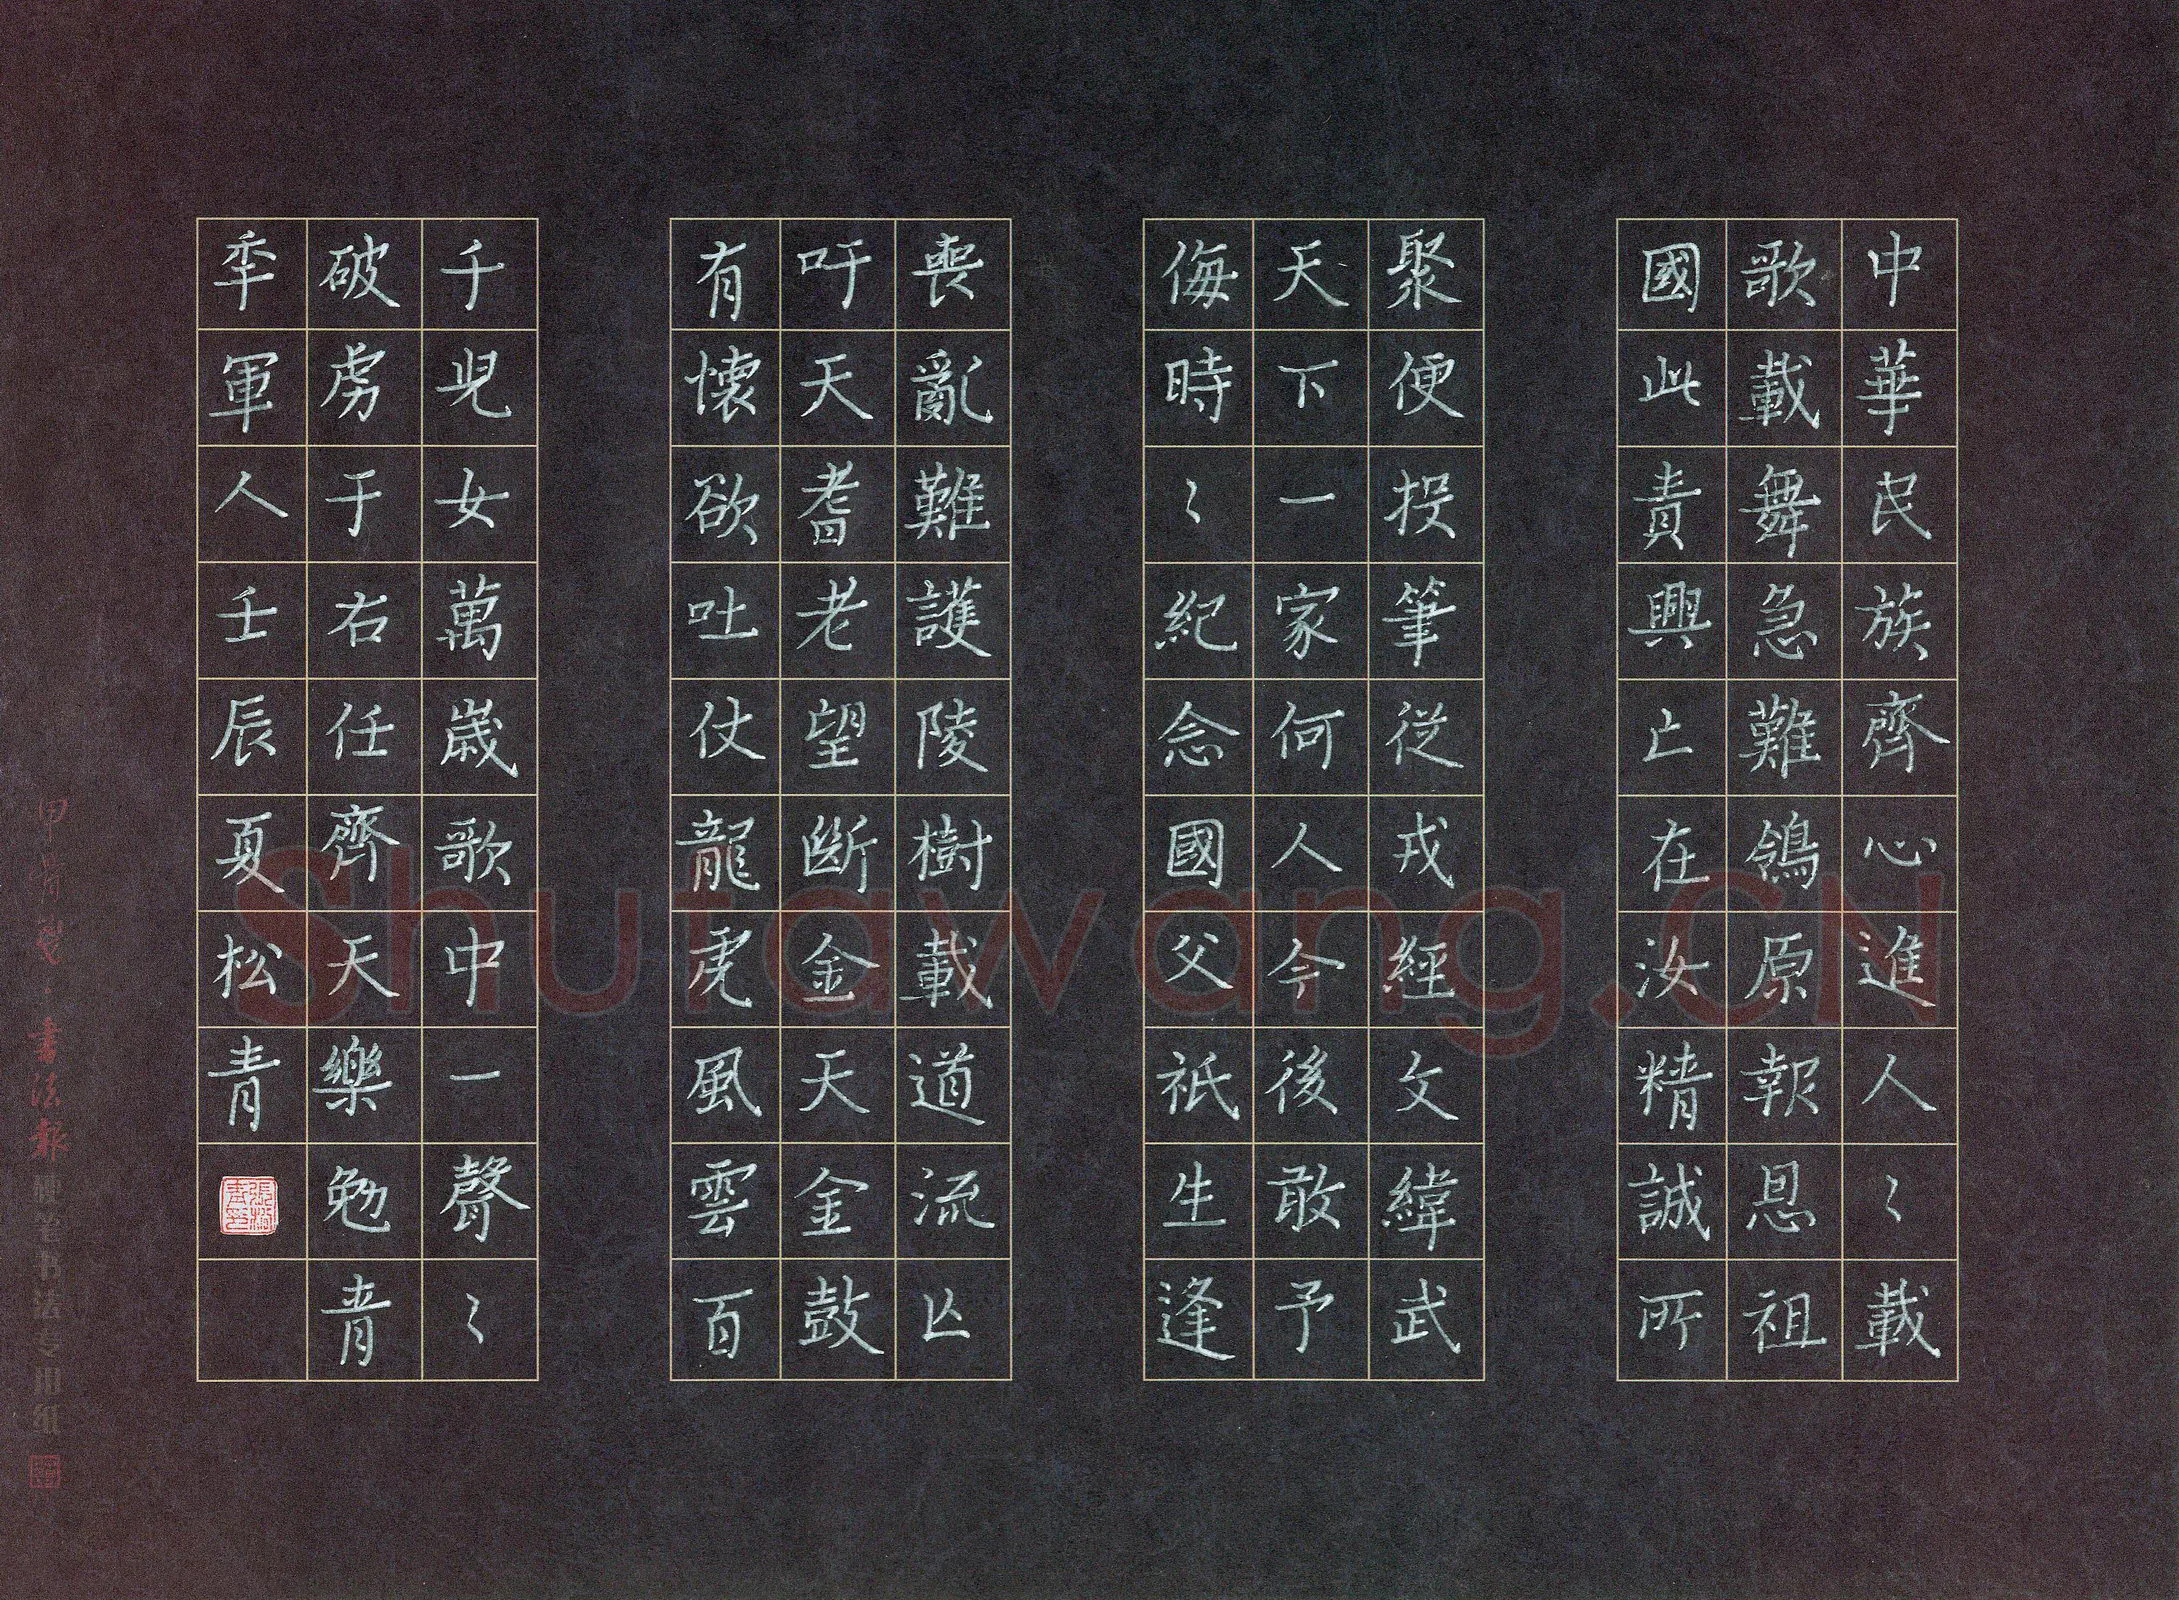 中華民族齊心進人〻載
歌載舞急難鴒原報恩祖
國此責興亡在汝精誠所
聚便投筆從戎經文緯武
天下一家何人今後敢予
侮時〻紀念國父祇生逢
喪亂難護陵樹載道流亾
吁天耆老望斷金天金鼓
有懷欲吐仗龍虎風雲百
千児女萬歲歌中一聲〻
破虜于右任齊天樂勉青
秊軍人壬辰夏松青
書法報硬笔书法专用纸
Shufawang.CN